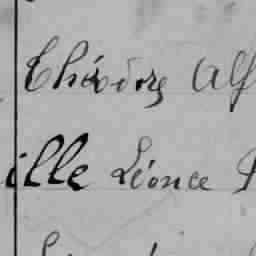 Théodore Alf
ille Léonce